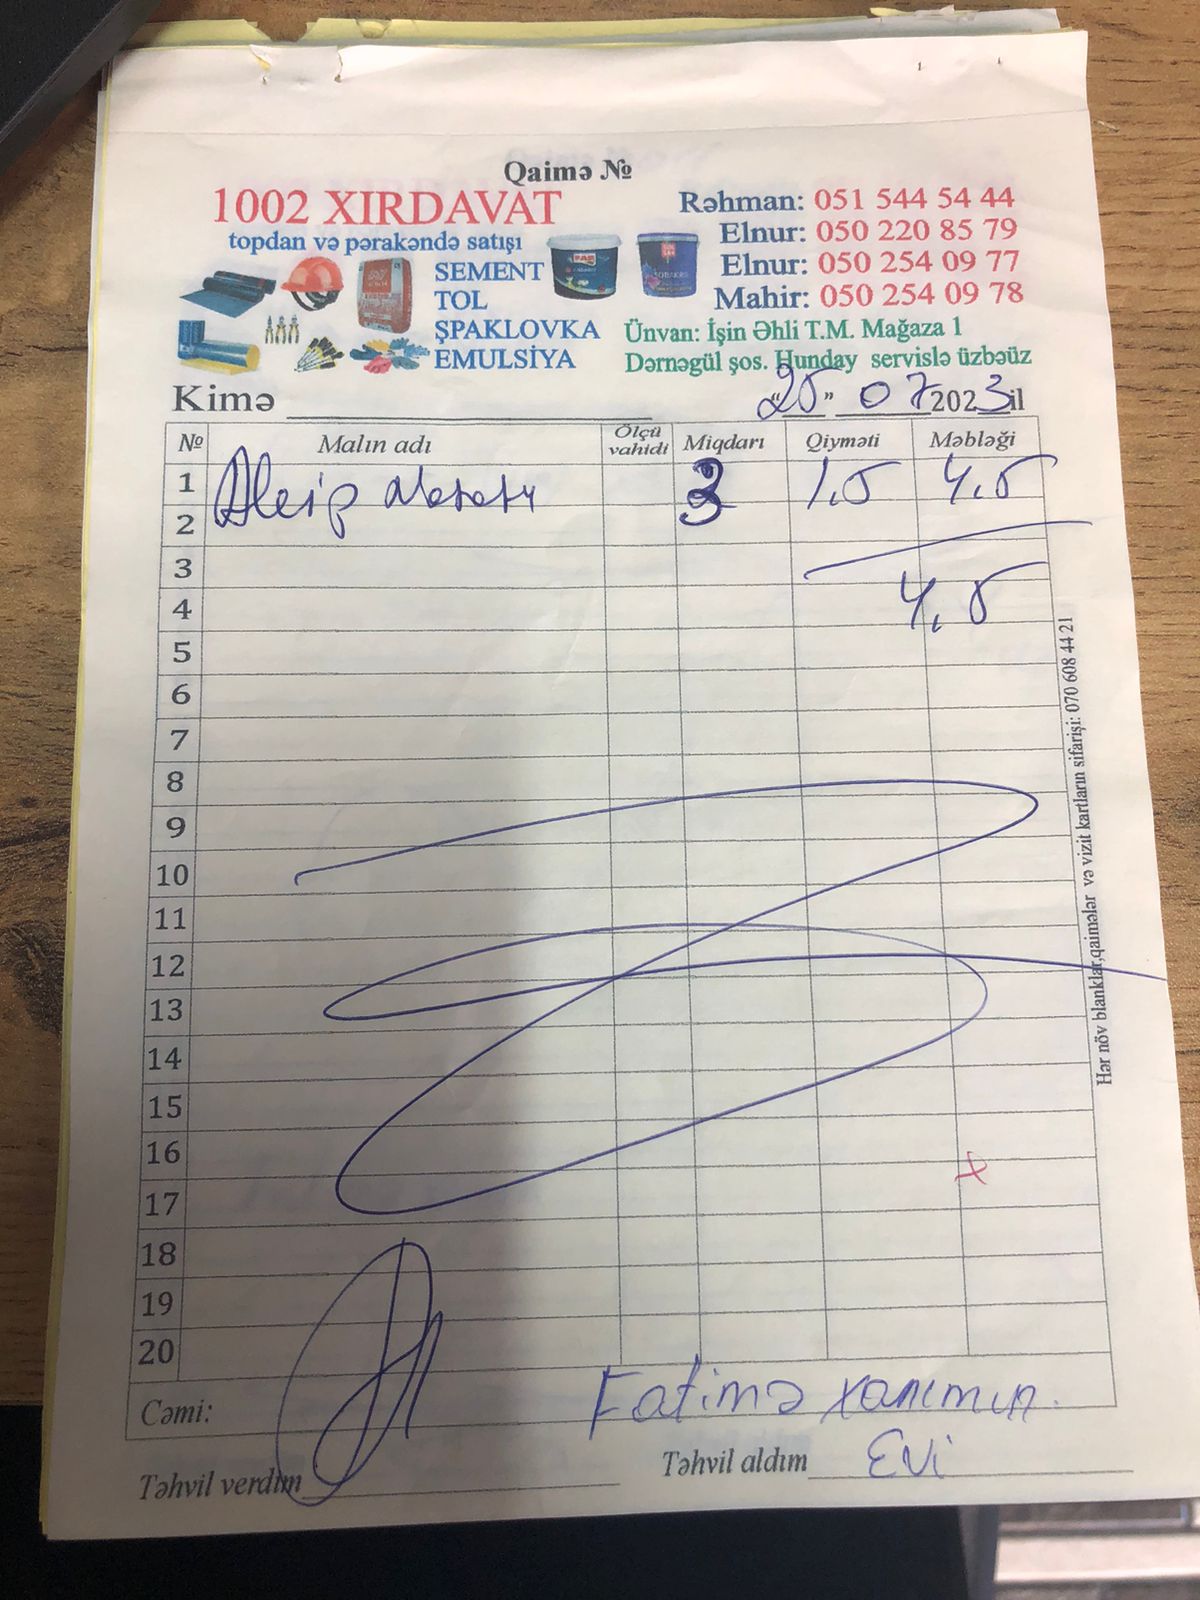 Qaimə №
1002 XIRDAVAT
topdan və pərakəndə satışı
SEMENT
TOL
ŞPAKLOVKA
EMULSİYA
Rəhman: 051 544 54 44
Elnur: 050 220 85 79
Elnur: 050 254 09 77
Mahir: 050 254 09 78
Ünvan: İşin Əhli T.M. Mağaza 1
Dərnəgül şos. Hunday servislə üzbəüz
Kimə
“25” 07 2023 il
№ Malın adı Ölçü vahidi Miqdarı Qiyməti Məbləği
1 3 1,5 4,5
2
3
4 4,5
5
6
7
8
9
10
11
12
13
14
15
16
17
18
19
20
Cəmi: Fatimə xanımın.
Təhvil verdim Təhvil aldım Evi
Hər növ blanklar,qaimələr və vizit kartların sifarişi: 070 608 44 21